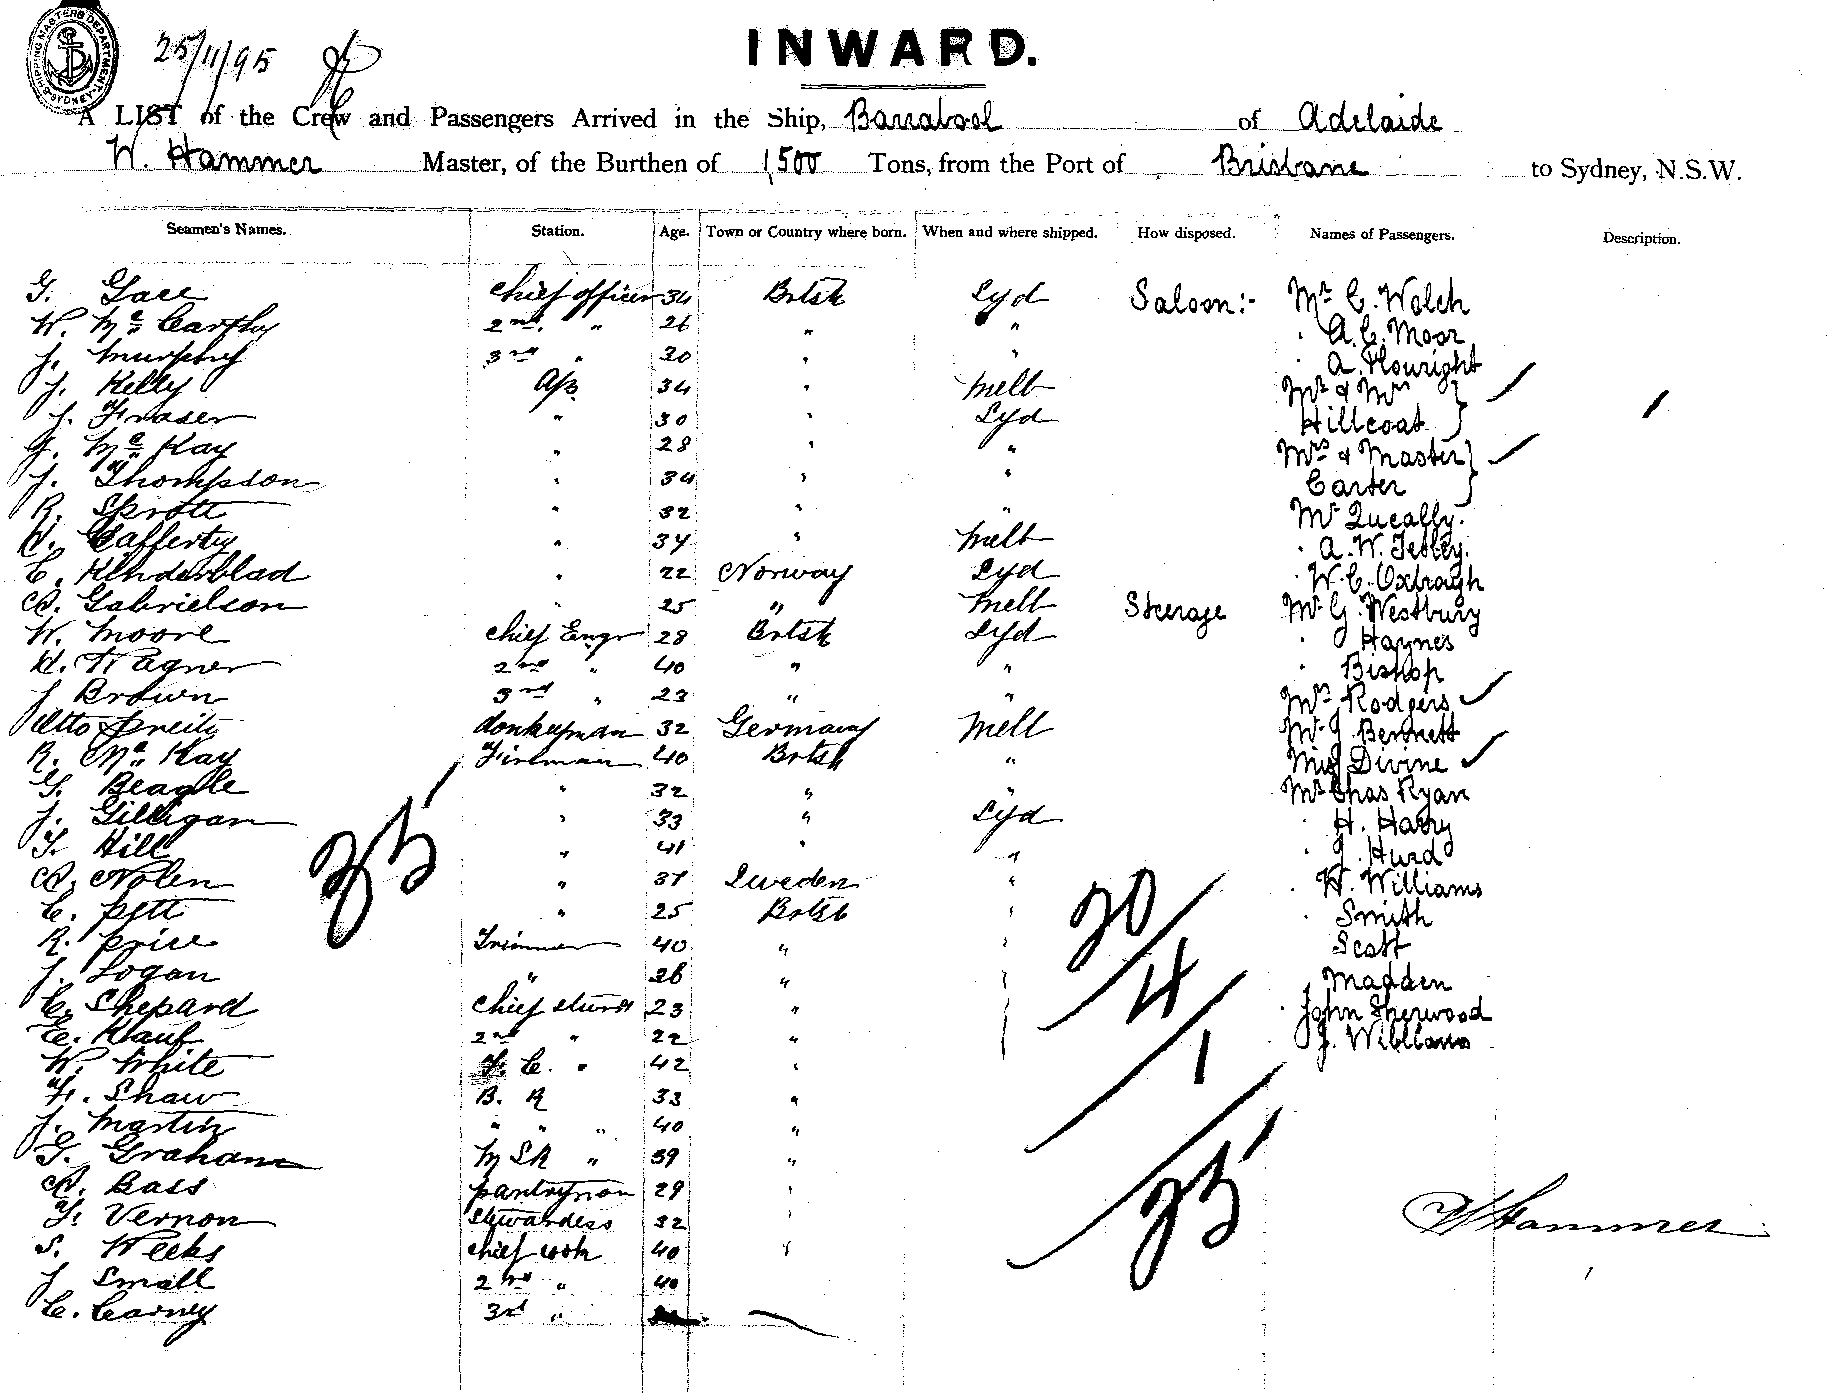 SHIPPING MASTERS DEPARTMENT SYDNEY
25/11/95
INWARD.
A LIST of the Crew and Passengers Arrived in the Ship, Barrabool of Adelaide
W. Hammer Master, of the Burthen of 1,500 Tons, from the Port of Brisbane to Sydney, N.S.W.
Seamen's Names. Station. Age. Town or Country where born. When and where shipped. How disposed. Names of Passengers. Description.
G. chief officer 34 Brtsh Syd Saloon:- Mr C. Welch
W. Mc Carthy 2nd " 26 " " " A. C. Moor
J. Murphy 3rd " 20 " " " A. Plowright
J. Kelly A/B 34 " Melb Mr & Mrs }
J. Fraser " 30 " Syd Hillcoat }
G. Mc Kay " 28 " " Mrs & Master }
J. Thompson " 34 " " Carter }
R. Sprott " 32 " " Mr Queally.
" 34 " Melb " A. W.
C. Kinderblad " 22 Norway Syd " W. C. Oxbragh
A. Gabrielson " 25 " Melb Steerage Mr G. Westbury
W. Moore chief Engr 28 Brtsh Syd " Haynes
H. Wagner 2nd " 40 " " " Bishop
J Brown 3rd " 23 " " Mrs Rodgers
Otto donkeyman 32 Germany Melb Mr J. Bennett
R. Mc Kay Fireman 40 Brtsh " Miss Divine
G. Beagle " 32 " " Mr Chas Ryan
J. Gilligan " 33 " Syd " H. Harry
F. Hill " 41 " " " J. Hurd
A. Nolen " 37 Sweden " " W. Williams
C. Pett " 25 Brtsh " " Smith
R. Price Trimmer 40 " " Scott
J. Logan " 26 " " Madden
C. Shepard chief stwrd 23 " " John Sherwood
E. 2nd " 22 " J. Williams
W. White F. C. " 42 "
F. Shaw B. R 33 "
J. Martin " " " 40 "
G. Graham M S R " 39 "
A. Bass pantryman 29 "
F. Vernon Stewardess 32 "
S. Weeks chief cook 40 "
J Small 2nd " 40
C. Carney 3rd "
35
30
4
1
35
W Hammer